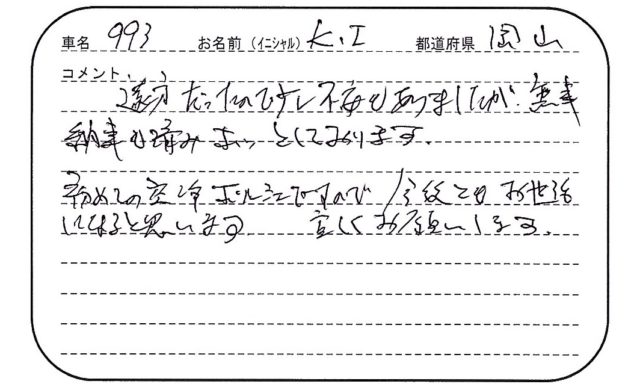 車名 993 お名前（イニシャル）K.I 都道府県 岡山
コメント
遠方だったので少し不安もありましたが、無事
納車も済みホッとしております。
初めての空冷ポルシェですので今後ともお世話
になると思います 宜しくお願いします。